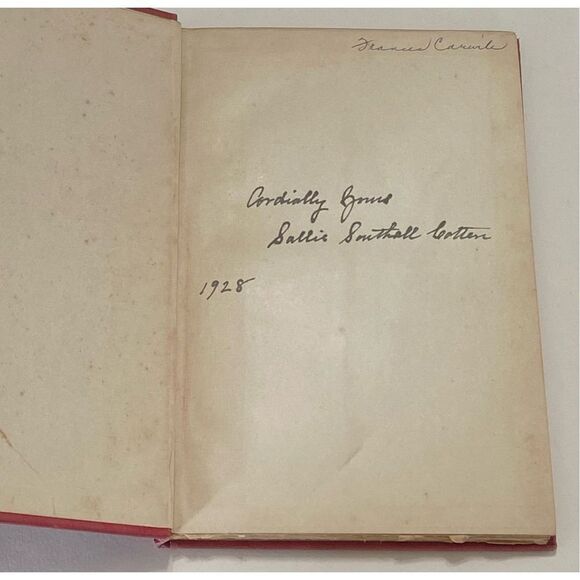 Frances Carwile
Cordially Yours
Sallie Southall Cotten
1928